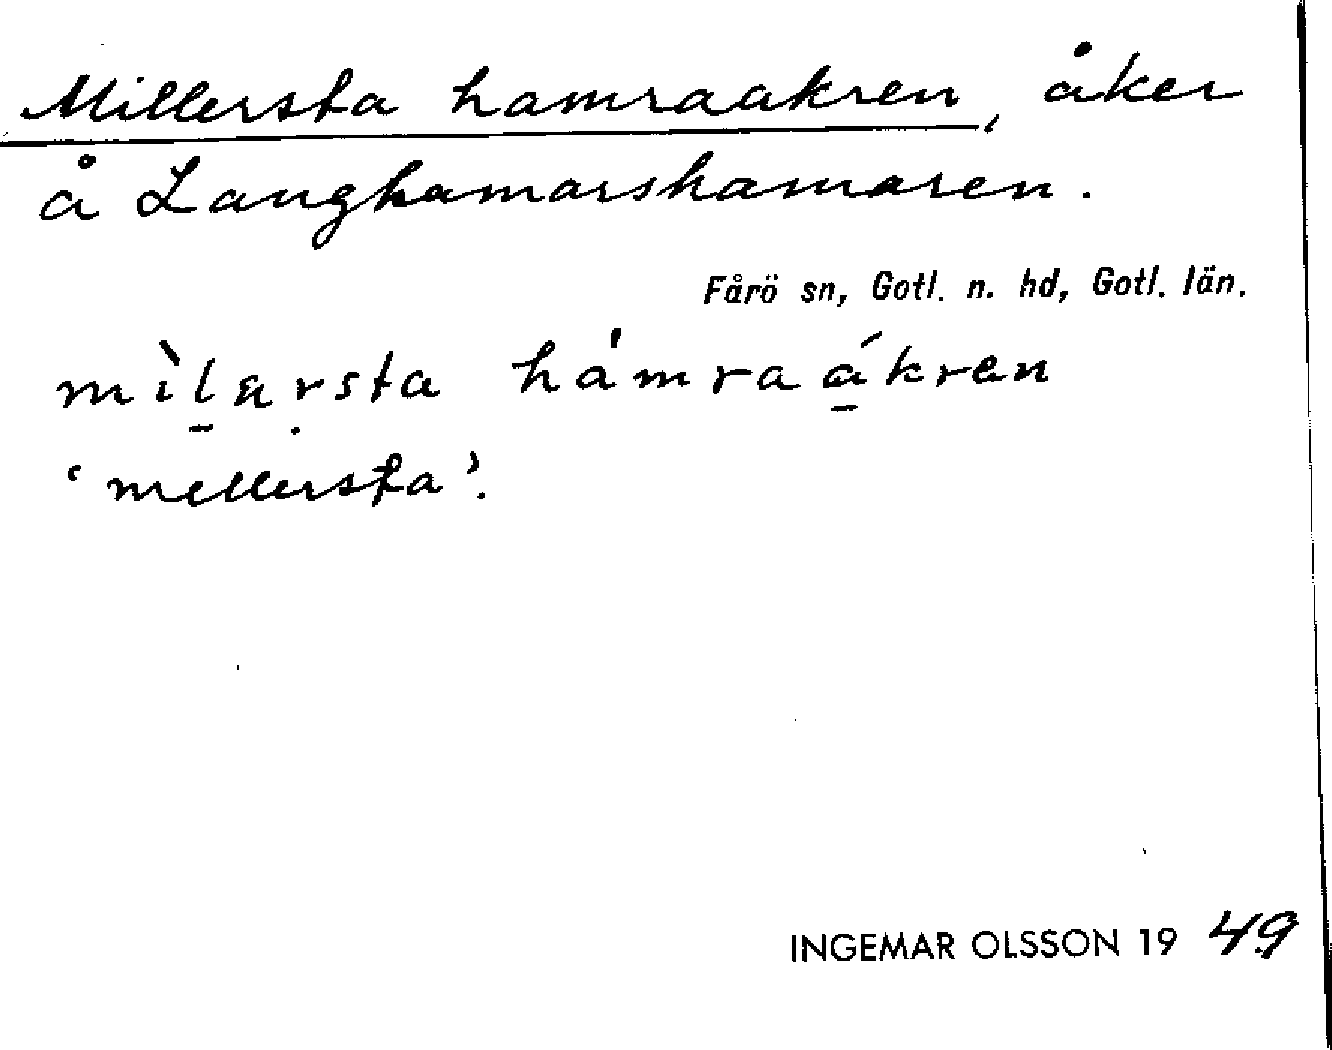 Millersta hamraakren, åker
å Langhamarshamaren.
Fårö sn, Gotl. n. hd, Gotl. län.
mìlarsta hámraákren
'mellersta'.
INGEMAR OLSSON 1949